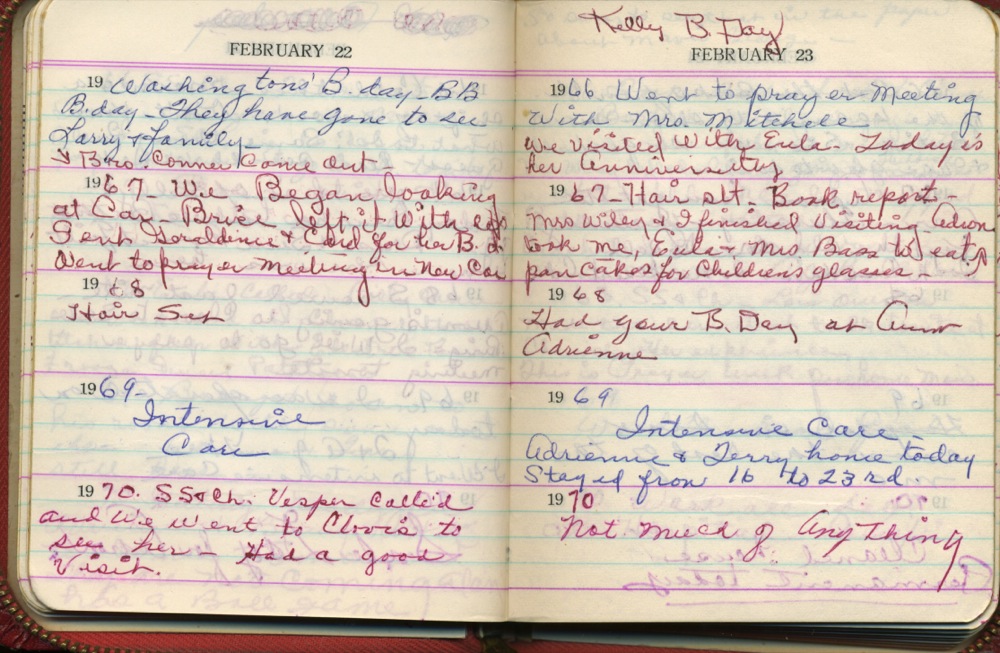 FEBRUARY 22
19 Washingtons' B. day - BB
B.day - They have gone to see
Larry & family -
Bro. Conner Come out
1967 - We Began looking
at Car - Brice left it with
I ent Goraldence & for her B.
Went to prayer meeting in New Car
1968
Hair Set
1969 -
Intensive
Care
1970. SS & Ch. Vesper Called
and We went to Clovis to
see her - Had a good
Visit.
Kelly B. Day
FEBRUARY 23
1966 Went to prayer Meeting
With Mrs. Mitchell
we visited With Eula - Today is
her Anniversity
1967 - Hair set - Book report -
Mrs Wiley & I finished Visiting -
took me, Eula & Mrs Bass to eat
pan cakes for Children's glasses -
1968
Had your B. Day at Aunt
Adrienne
1969
Intensive Care -
Adrienne & Terry home today
Stayed from 16 to 23rd
1970
Not much of Anything